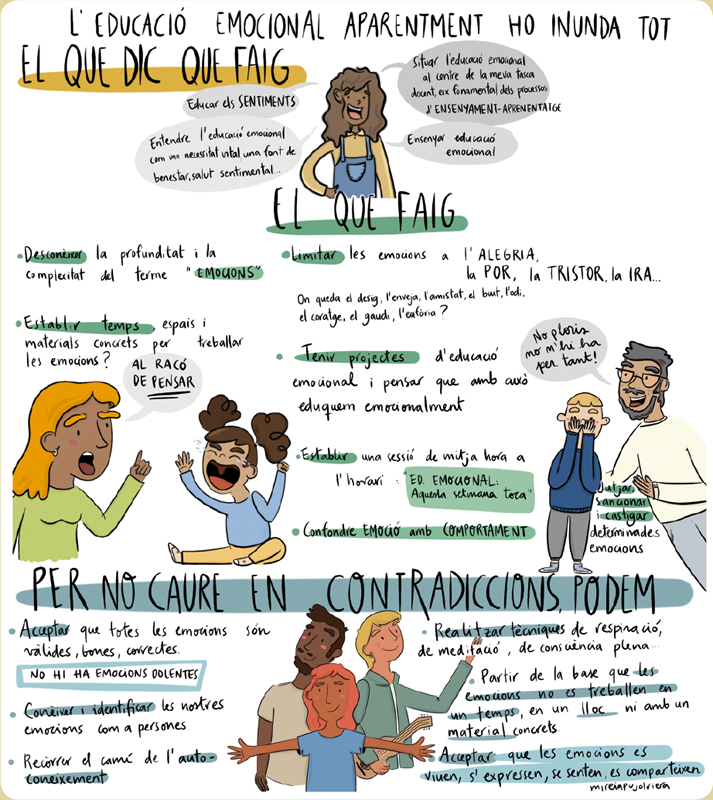 L'EDUCACIÓ EMOCIONAL APARENTMENT HO INUNDA TOT
EL QUE DIC QUE FAIG
Educar els SENTIMENTS
Situar l'educació emocional
al centre de la meva tasca
docent, eix fonamental dels processos
d'ENSENYAMENT-APRENENTATGE
Entendre l'educació emocional
com una necessitat vital, una font de
benestar, salut sentimental...
Ensenyar educació
emocional
EL QUE FAIG
Desconèixer la profunditat i la
complexitat del terme "EMOCIONS"
Establir temps, espais i
materials concrets per treballar
les emocions?
AL RACÓ
DE PENSAR
Limitar les emocions a l'ALEGRIA,
la POR, la TRISTOR, la IRA...
On queda el desig, l'enveja, l'amistat, el buit, l'odi,
el coratge, el gaudi, l'eufòria?
Tenir projectes d'educació
emocional i pensar que amb això
eduquem emocionalment
Establir una sessió de mitja hora a
l'horari: "ED. EMOCIONAL:
Aquesta setmana toca"
Confondre EMOCIÓ amb COMPORTAMENT
No ploris
no n'hi ha
per tant!
Jutjar,
sancionar
i castigar
determinades
emocions
PER NO CAURE EN CONTRADICCIONS, PODEM
Acceptar que totes les emocions són
vàlides, bones, correctes.
NO HI HA EMOCIONS DOLENTES
Conèixer i identificar les nostres
emocions com a persones.
Recórrer el camí de l'auto-
coneixement
Realitzar tècniques de respiració,
de meditació, de consciència plena...
Partir de la base que les
emocions no es treballen en
un temps, en un lloc ni amb un
material concrets.
Acceptar que les emocions es
viuen, s'expressen, se senten, es comparteixen
mireiapujolriera